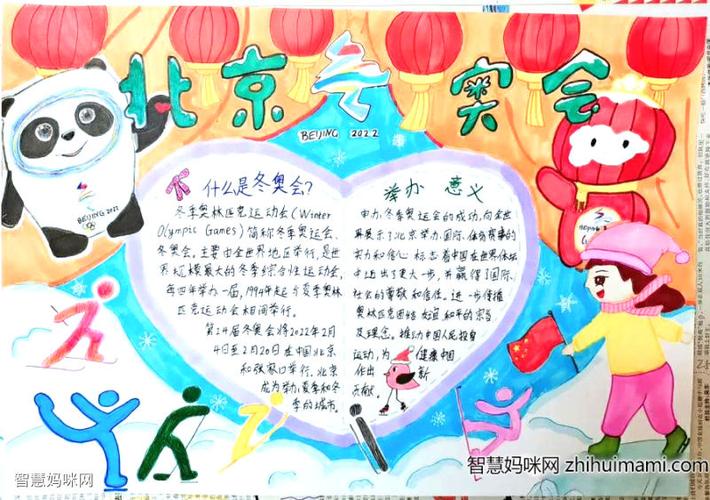 北京冬奥会
BEIJING 2022
BEIJING 2022
什么是冬奥会?
冬季奥林匹克运动会(Winter
Olympic Games)简称冬季奥运会、
冬奥会。主要由全世界地区举行,是世
界规模最大的冬季综合性运动会,
每四年举办一届,1994年起与夏季奥林
匹克运动会相间举行。
第24届冬奥会将2022年2月
4日至2月20日在中国北京
和张家口举行。北京
成为举办夏季和冬
季的城市。
举办 意义
申办冬季奥运会的成功,向全世
界展示了北京举办国际体育赛事的
实力和信心 标志着中国在世界体坛
上迈出了更大一步,并赢得了国际
社会的尊敬和信任。进一步传播
奥林匹克团结 友谊 和平的宗旨
及理念。推动中国人民投身
运动,为 健康中国
作出 新
贡献。
智慧妈咪网
智慧妈咪网 zhihuimami.com